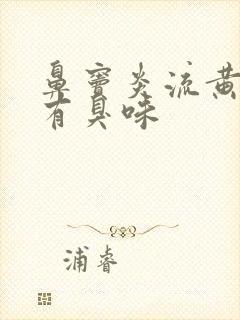 鼻窦炎流黄
有臭味
浦睿